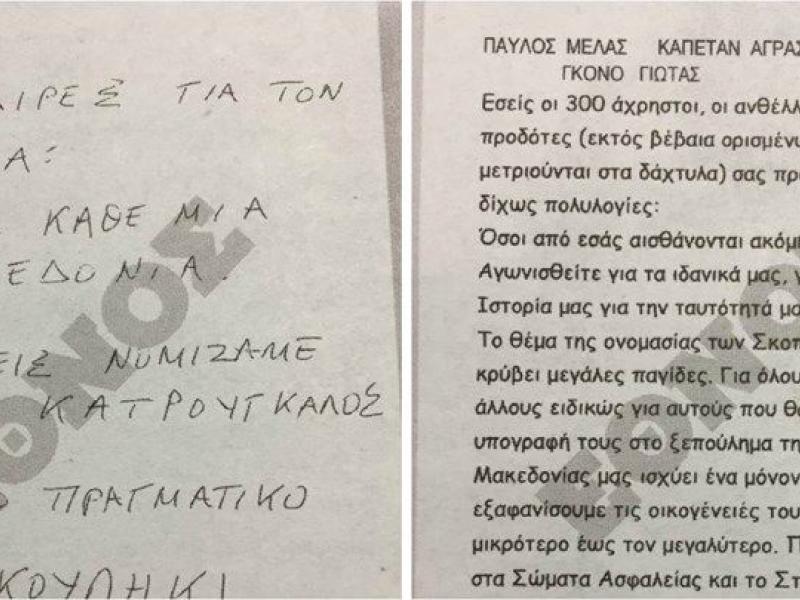 ΑΙΡΕΣ ΓΙΑ ΤΟΝ
Α:
ΚΑΘΕ ΜΙΑ
ΕΔΟΝΙΑ.
ΕΙΣ ΝΟΜΙΖΑΜΕ
ΚΑΤΡΟΥΓΚΑΛΟΣ
ΠΡΑΓΜΑΤΙΚΟ
ΚΟΥΛΗΚΙ
ΕΘΝΟΣ
ΠΑΥΛΟΣ ΜΕΛΑΣ ΚΑΠΕΤΑΝ ΑΓΡΑΣ
ΓΚΟΝΟ ΓΙΩΤΑΣ
Εσείς οι 300 άχρηστοι, οι ανθέλλ
προδότες (εκτός βέβαια ορισμένω
μετριούνται στα δάχτυλα) σας πρ
δίχως πολυλογίες:
Όσοι από εσάς αισθάνονται ακόμ
Αγωνισθείτε για τα ιδανικά μας, γ
Ιστορία μας για την ταυτότητά μα
Το θέμα της ονομασίας των Σκοπ
κρύβει μεγάλες παγίδες. Για όλου
άλλους ειδικώς για αυτούς που θα
υπογραφή τους στο ξεπούλημα τη
Μακεδονίας μας ισχύει ένα μόνον
εξαφανίσουμε τις οικογένειές του
μικρότερο έως τον μεγαλύτερο. Π
στα Σώματα Ασφαλείας και το Στ
ΕΘΝΟ